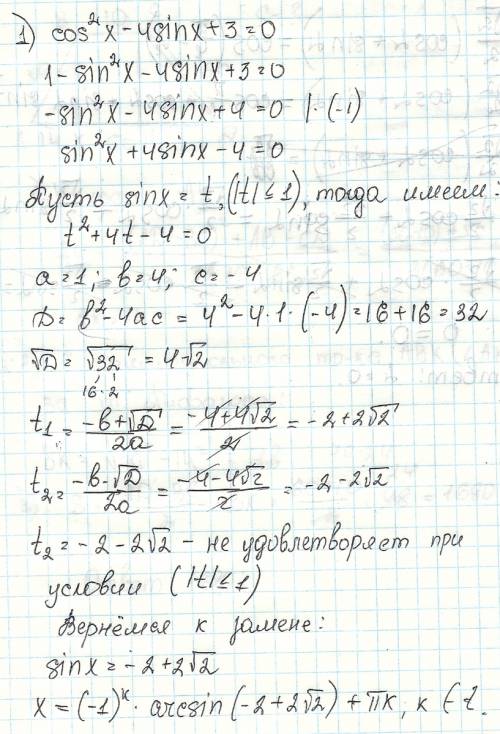 1) cos²x - 4sinx + 3 = 0
1 - sin²x - 4sinx + 3 = 0
-sin²x - 4sinx + 4 = 0 |·(-1)
sin²x + 4sinx - 4 = 0
Пусть sinx = t, (|t| ≤ 1), тогда имеем:
t² + 4t - 4 = 0
a = 1; b = 4; c = -4
D = b² - 4ac = 4² - 4·1·(-4) = 16 + 16 = 32
√D = √32 = 4√2
16·2
t₁ = (-b+√D)/2a = (-4+4√2)/2 = -2 + 2√2
t₂ = (-b-√D)/2a = (-4-4√2)/2 = -2 - 2√2
t₂ = -2 - 2√2 - не удовлетворяет при
условии (|t| ≤ 1)
Вернёмся к замене:
sinx = -2 + 2√2
x = (-1)ᵏ · arcsin(-2 + 2√2) + πk, k ∈ Z.